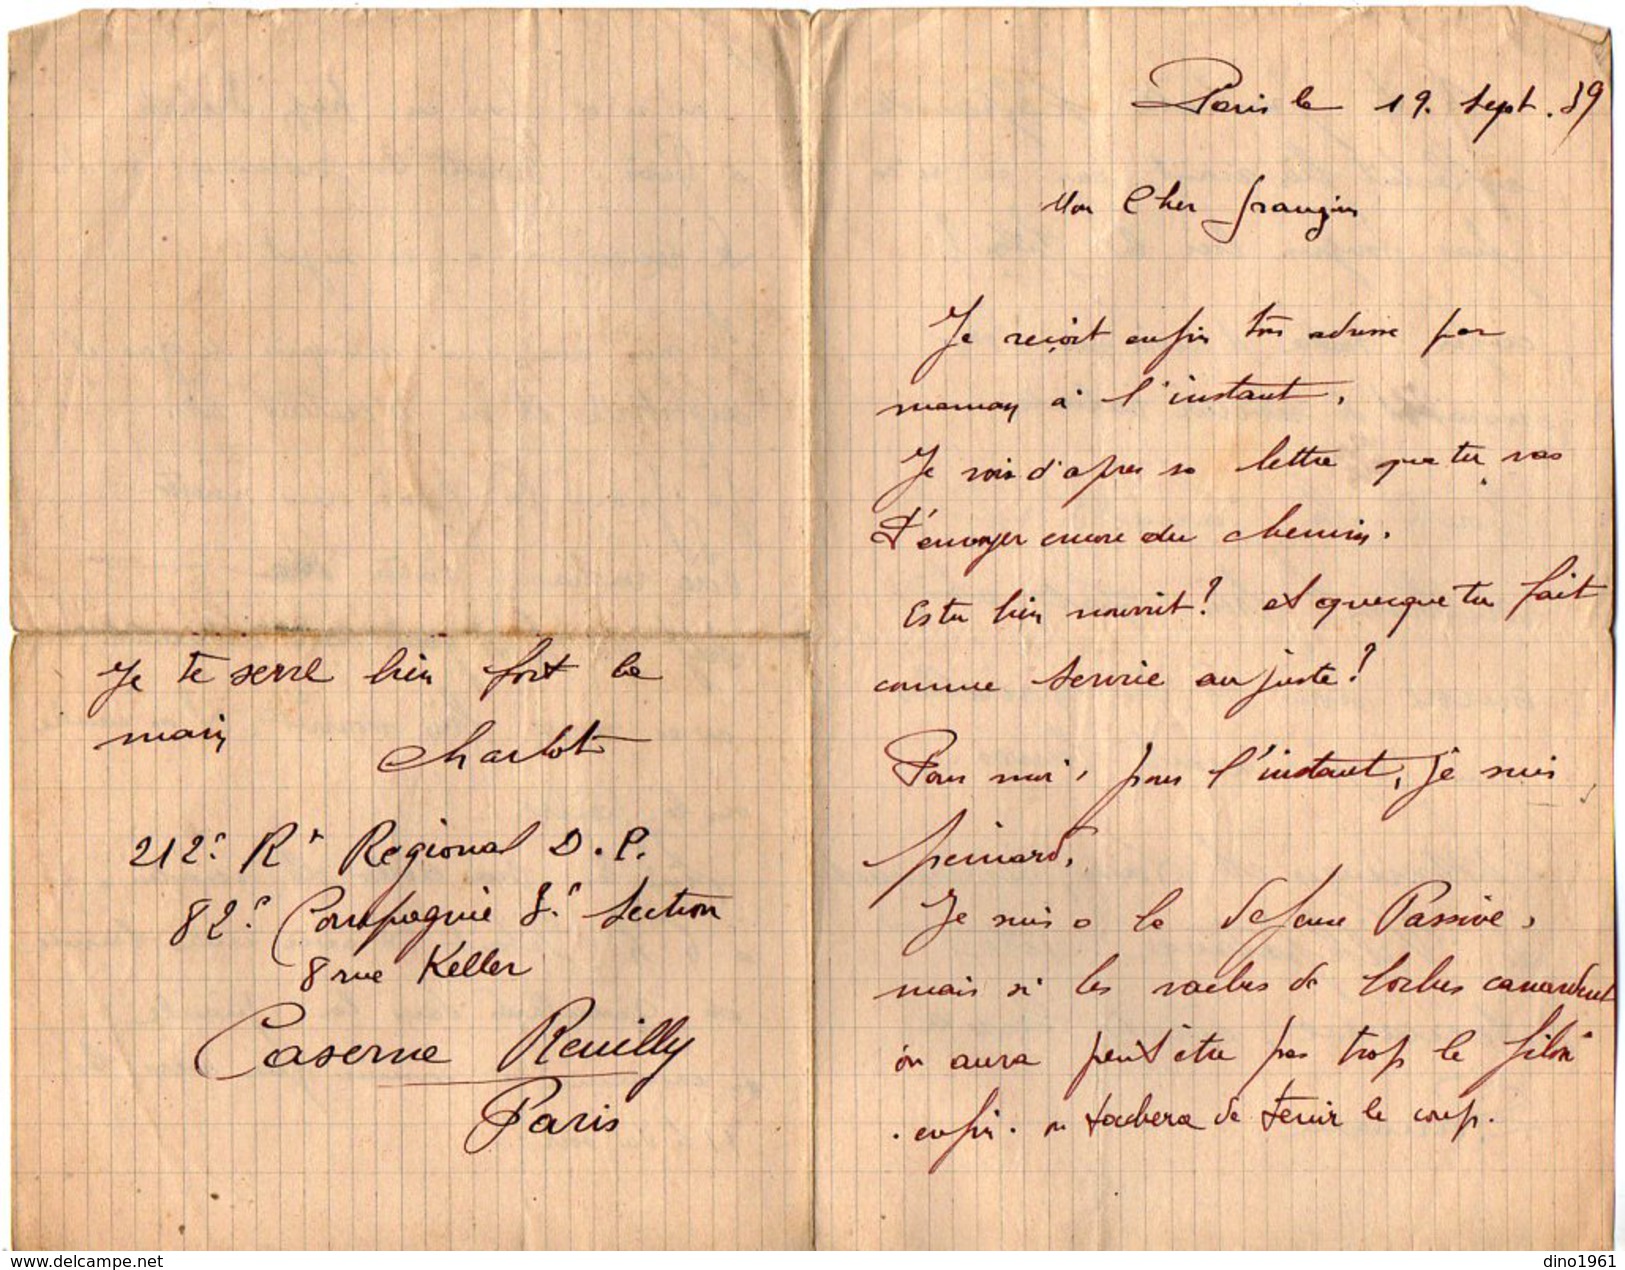 Paris le 19. Sept. 39
Mon Cher frangin
Je reçoit enfin ton adresse par
maman à l'instant.
Je vois d'apres sa lettre que tu vas
t'envoyer encore du chemin.
Es tu bien nourrit? et quesque tu fait
comme service au juste?
Pour moi, pour l'instant, je suis
peinard,
Je suis a la defense Passive,
mais si les vaches de boches canardent
on aura peut être pas trop le filon
. enfin . on tachera de tenir le coup.
Je te serre bien fort la
main
Charlot
212e Rt Regional D.P.
82e Compagnie 3e Section
8 rue Keller
Caserne Reuilly
Paris
delcampe.net
dino1961